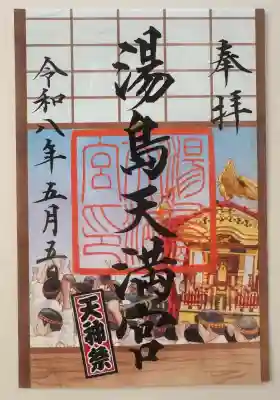 奉拝
湯島天満宮
令和八年五月五
天神祭